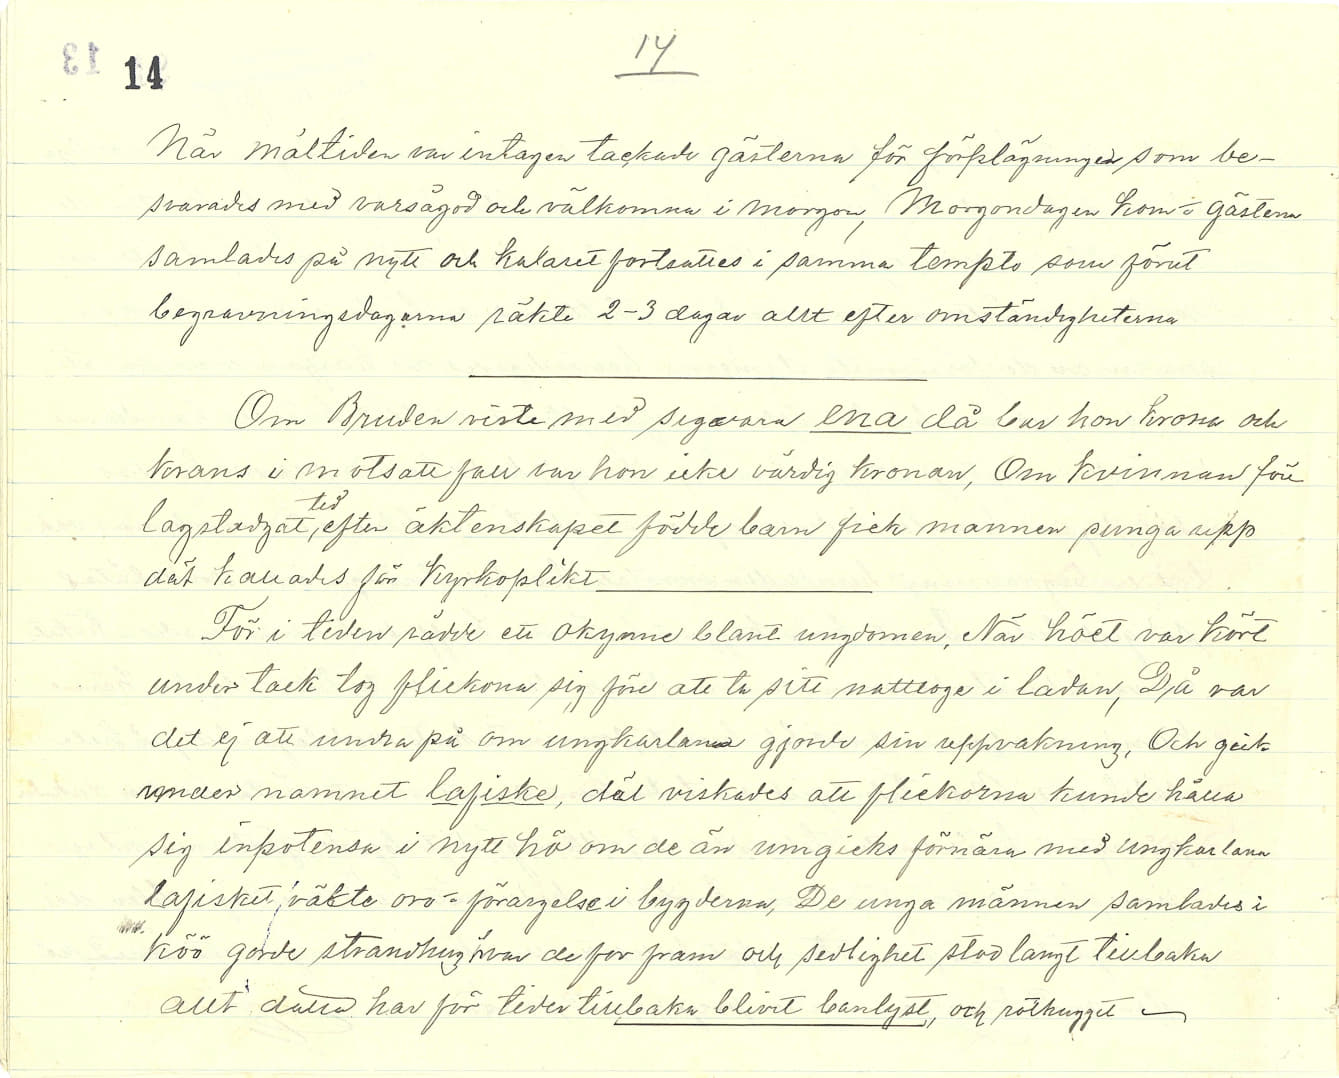 13
14
14
När måltiden var intagen tackade gästerna för förplägningen som be-
svarades med varsågod och välkomna i morgon, Morgondagen kom o gästerna
samlades på nytt och kalaset fortsattes i samma tempto som förut
begravningsdagarna räkte 2-3 dagar allt efter omständigheterna
Om Bruden viste med seg vara ena då bar hon krona och
krans i motsatt fall var hon icke värdig kronan, Om kvinnan före
lagstadgat tid, efter äktenskapet födde barn fick mannen punga upp
dät kallades för kyrkoplikt
För i tiden rådde ett okynne blant ungdomen, När höet var kört
under tack tog flickona sig före att ta sitt nattloge i ladan, Då var
det ej att undra på om ungkarlana gjorde sin uppvakning, Och gick
under namnet lafiske, dät viskades att flickorna kunde hålla
sig inpotensa i nytt hö om de än umgicks förnära med ungkarlana
lafisket, väkte oro o förargelse i bygderna, De unga männen samlades i
köö gorde strandhug hvar de for fram och sedlighet stod langt tillbaka
allt detta har för tider tillbaka blivit banlyst, och rothugget